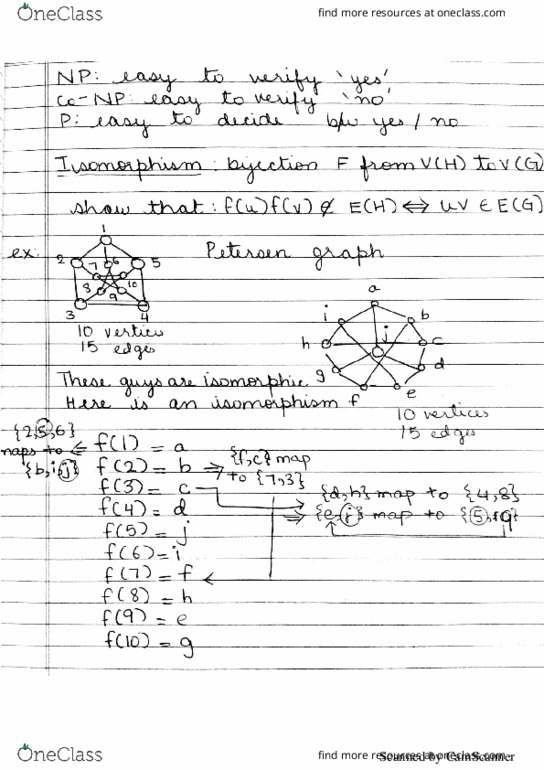 OneClass
find more resources at oneclass.com
NP: easy to verify 'yes'
co-NP: easy to verify 'no'
P: easy to decide b/w yes / no
Isomorphism: bijection F from V(H) to V(G)
show that: f(u)f(v) ∉ E(H) ⇔ uv ∈ E(G)
ex:
Petersen graph
1
2 7 6 5
8 9 10
3 4
10 vertices
15 edges
a
i b
j
h c
g d
e
These guys are isomorphic
Here is an isomorphism f
10 vertices
15 edges
{2,5,6}
maps to ⇐
{b,i,j}
f(1) = a
f(2) = b ⇒ {f,c} map
to {7,3}
f(3) = c
{d,h} map to {4,8}
f(4) = d
⇒ {e, } map to {5, }
f(5) = j
f(6) = i
f(7) = f
f(8) = h
f(9) = e
f(10) = g
OneClass
find more resources at oneclass.com
Scanned by CamScanner